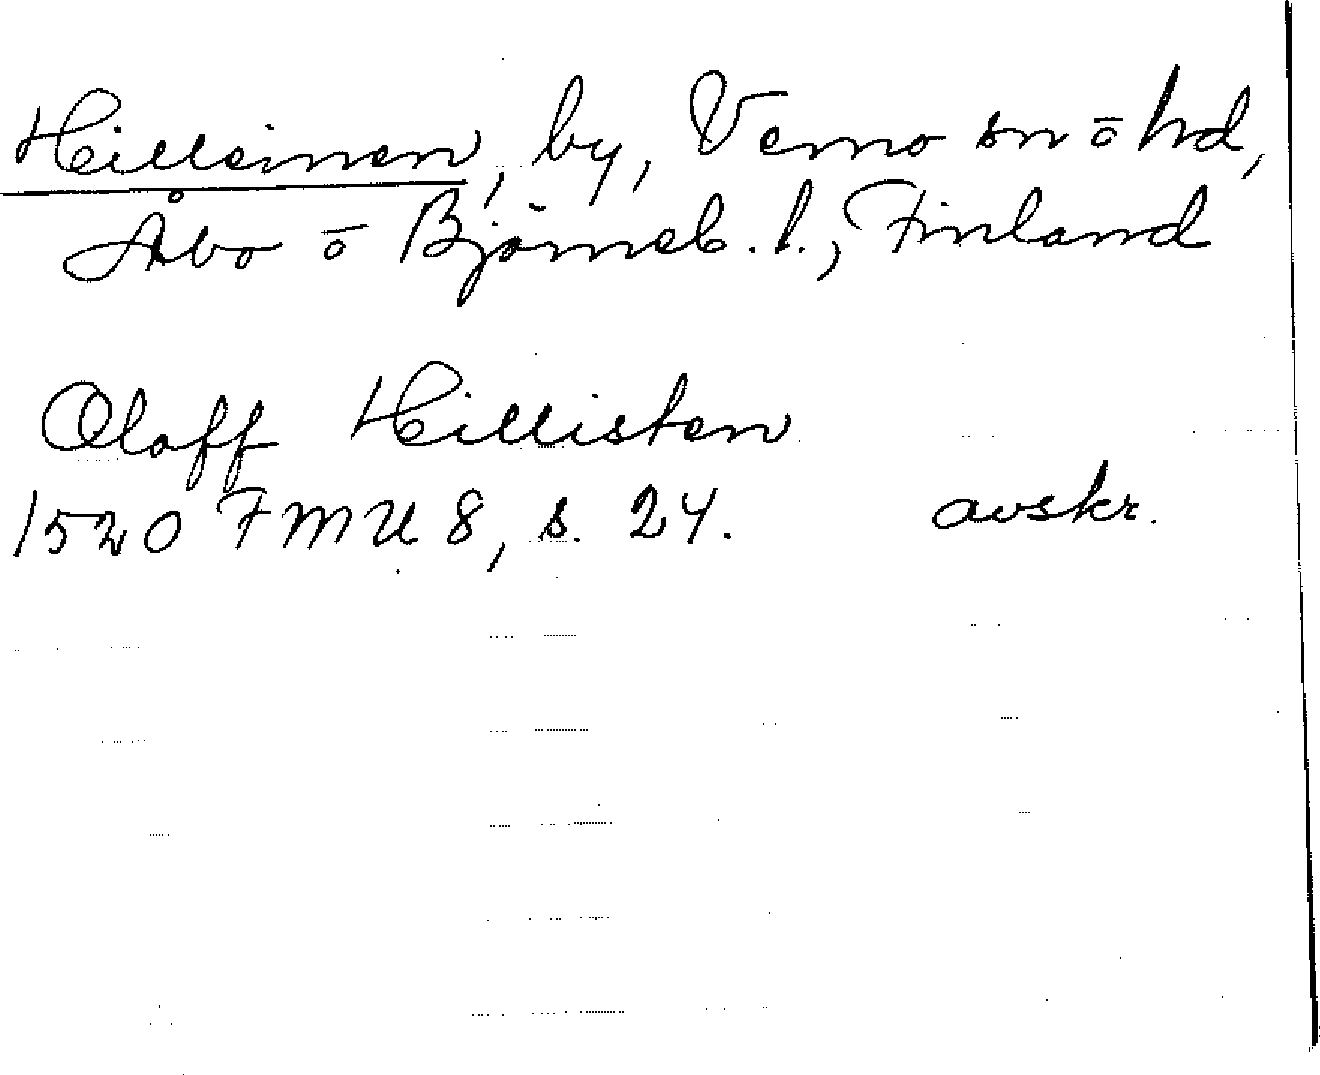 Hilleinen, by, Vemo sn o hd,
Åbo o Björneb. l., Finland
Olaff Hillisten
1520 FMU 8, s. 24. avskr.